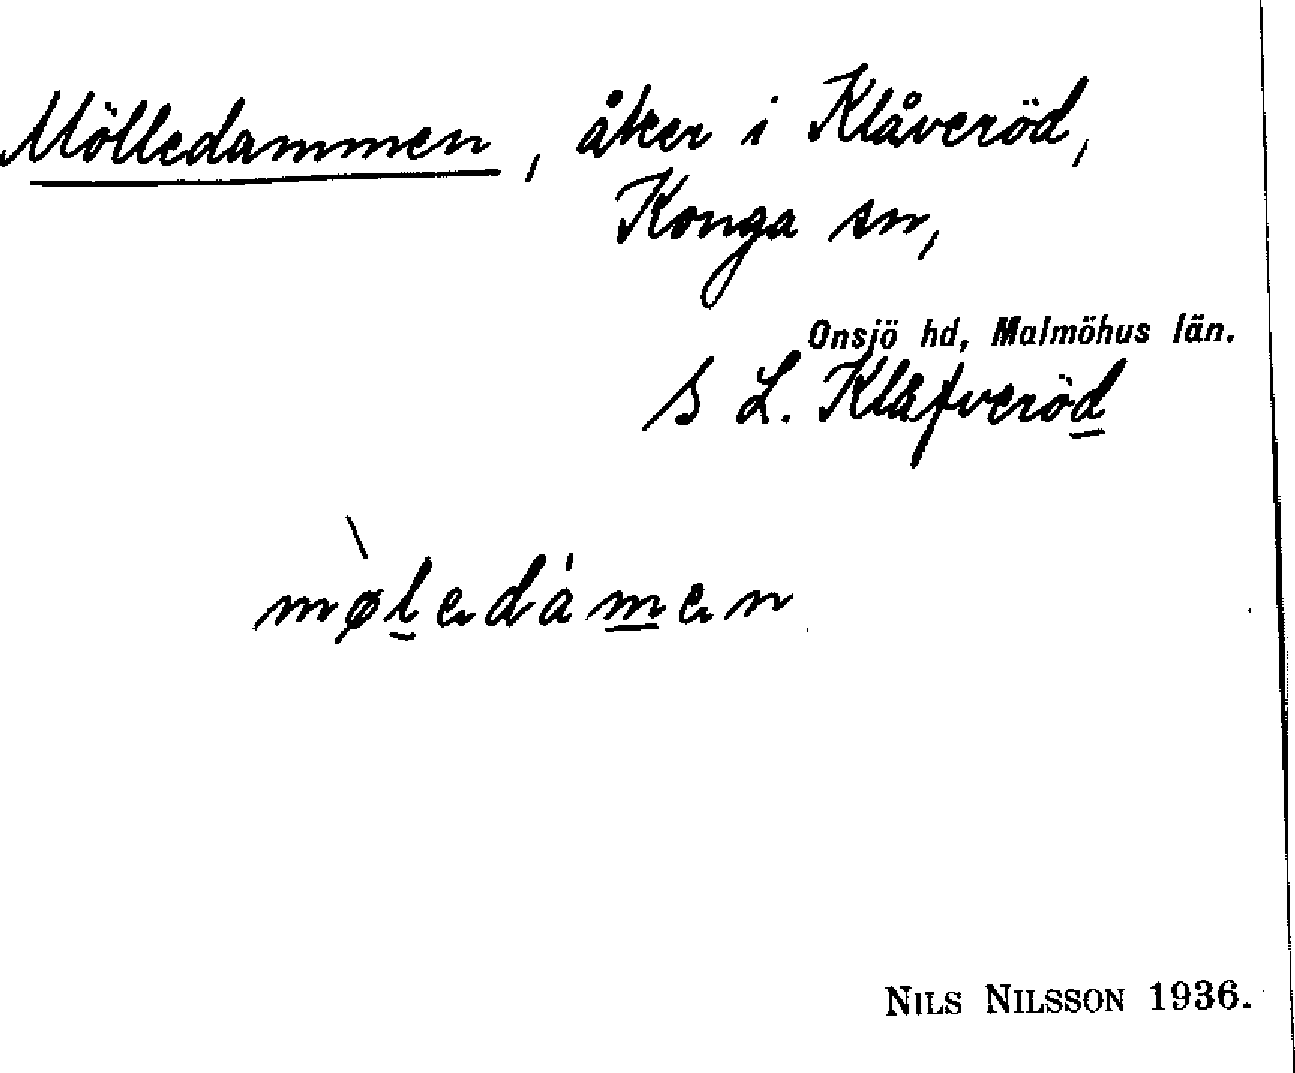 Mölledammen, åker i Klåveröd,
Konga sn,
Onsjö hd, Malmöhus län.
S L. Klåfveröd
møledamen
NILS NILSSON 1936.